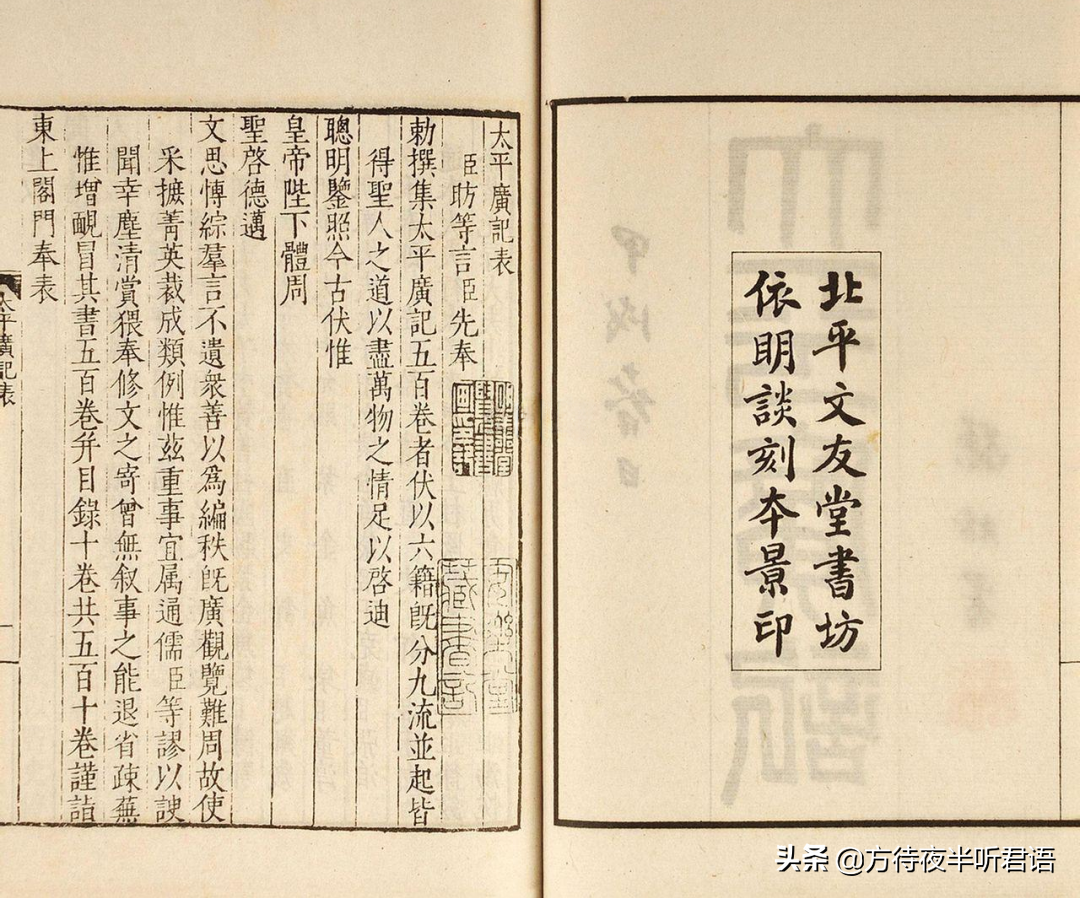 北平文友堂書坊
依明談刻本景印
太平廣記表
臣昉等言臣先奉
勅撰集太平廣記五百卷者伏以六籍旣分九流並起皆
得聖人之道以盡萬物之情足以啓迪
聰明鑒照今古伏惟
皇帝陛下體周
聖啓德邁
文思博綜羣言不遺衆善以爲編秩旣廣觀覽難周故使
采摭菁英裁成類例惟兹重事宜属通儒臣等謬以諛
聞幸塵清賞猥奉修文之寄曾無叙事之能退省疎蕪
惟增靦冒其書五百卷并目錄十卷共五百十卷謹詣
東上閣門奉表
太平廣記表
头条 @方待夜半听君语